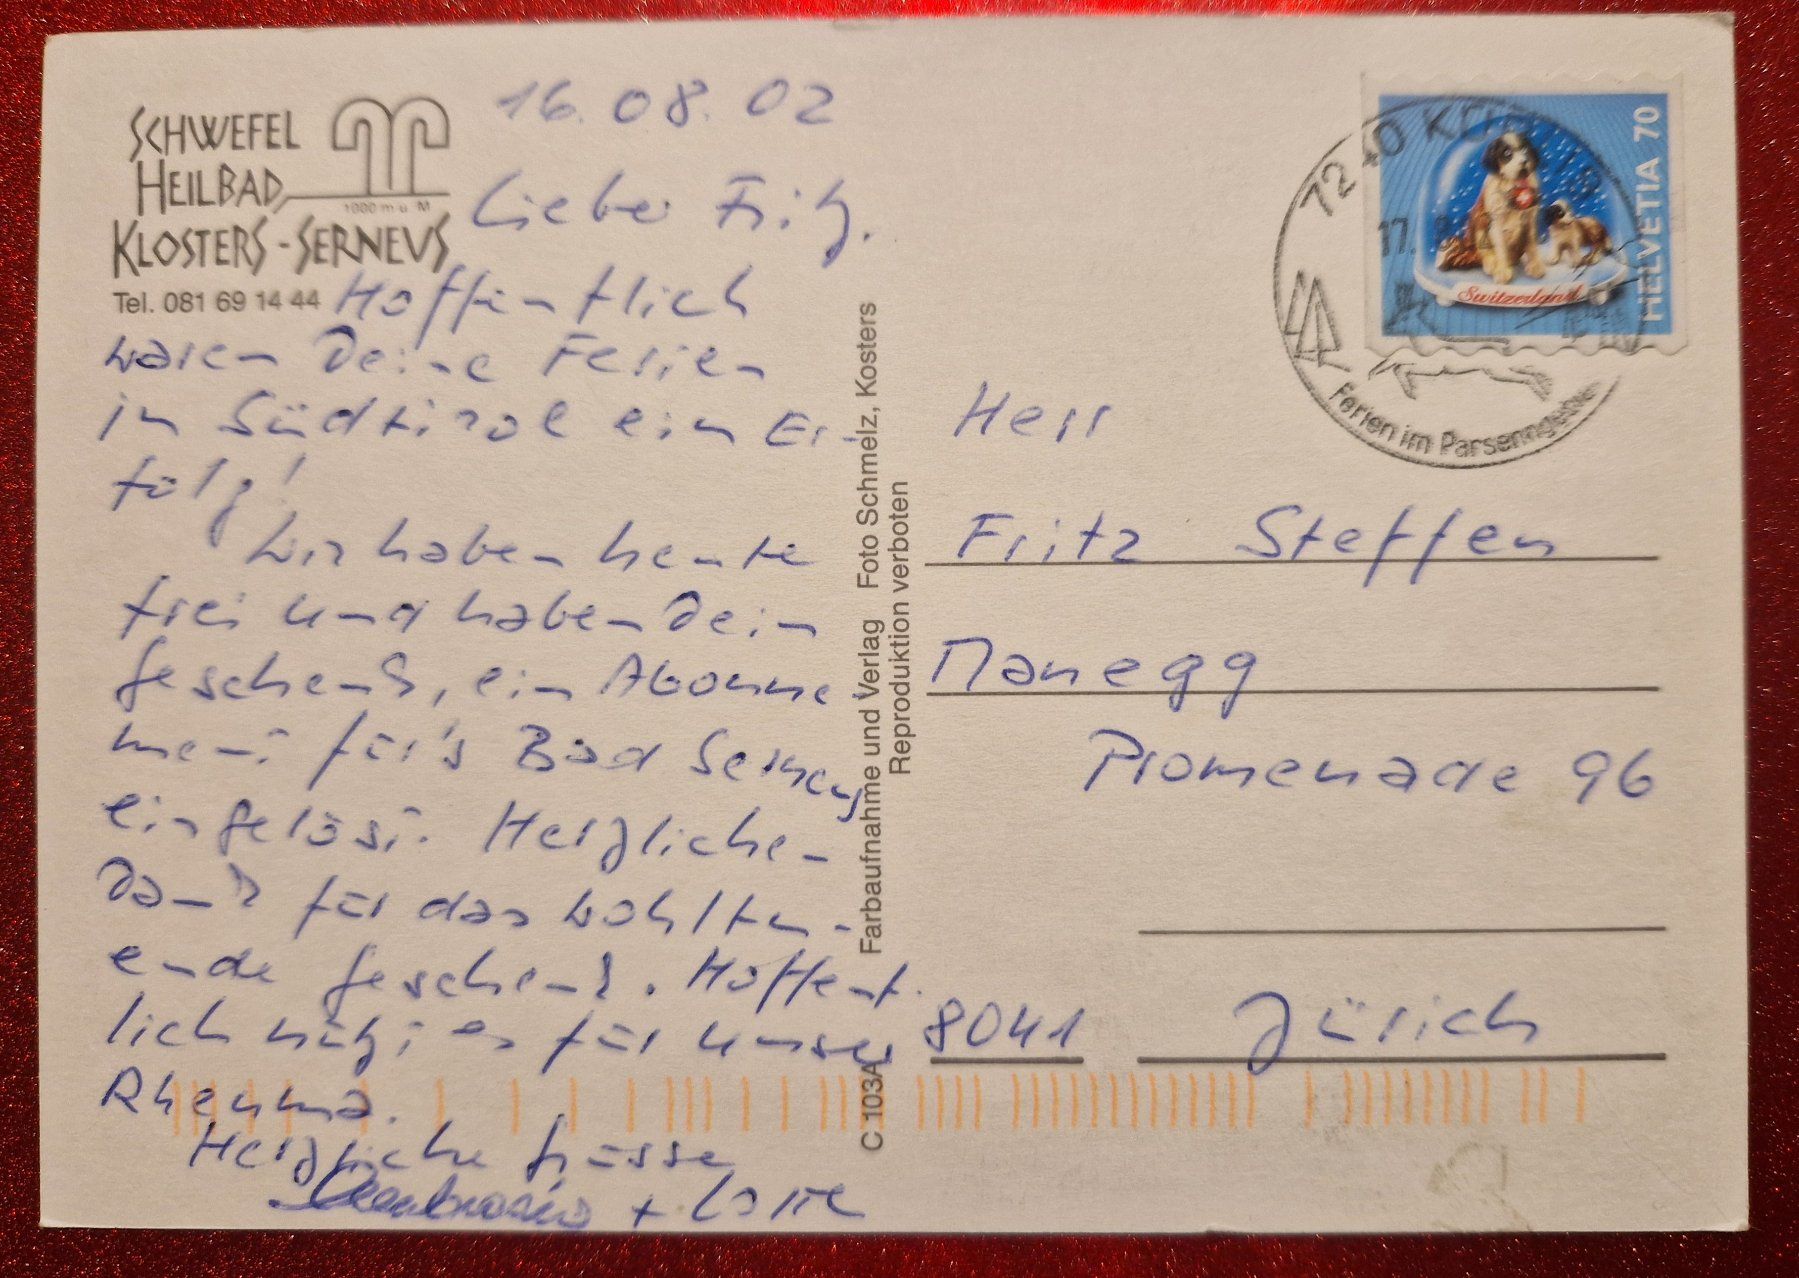 SCHWEFEL
HEILBAD
1000 m ü M
KLOSTERS - SERNEUS
Tel. 081 69 14 44
16.08.02
Lieber Fritz.
Hoffentlich
waren Deine Ferien
in Südtirol ein Er-
folg!
Wir haben heute
frei und haben Dein
Geschenk, ein Abonne-
ment für's Bad Serneus
eingelöst. Herzlichen
Dank für das wohltu-
ende Geschenk. Hoffent-
lich nützt es für unser
Rheuma.
Herzliche Grüsse
+ Lotte
Farbaufnahme und Verlag Foto Schmelz, Kosters
Reproduktion verboten
C 103A
7240
17.
Ferien im Parsenngebiet
HELVETIA 70
Switzerland
Herr
Fritz Steffen
Manegg
Promenade 96
8041 Zürich